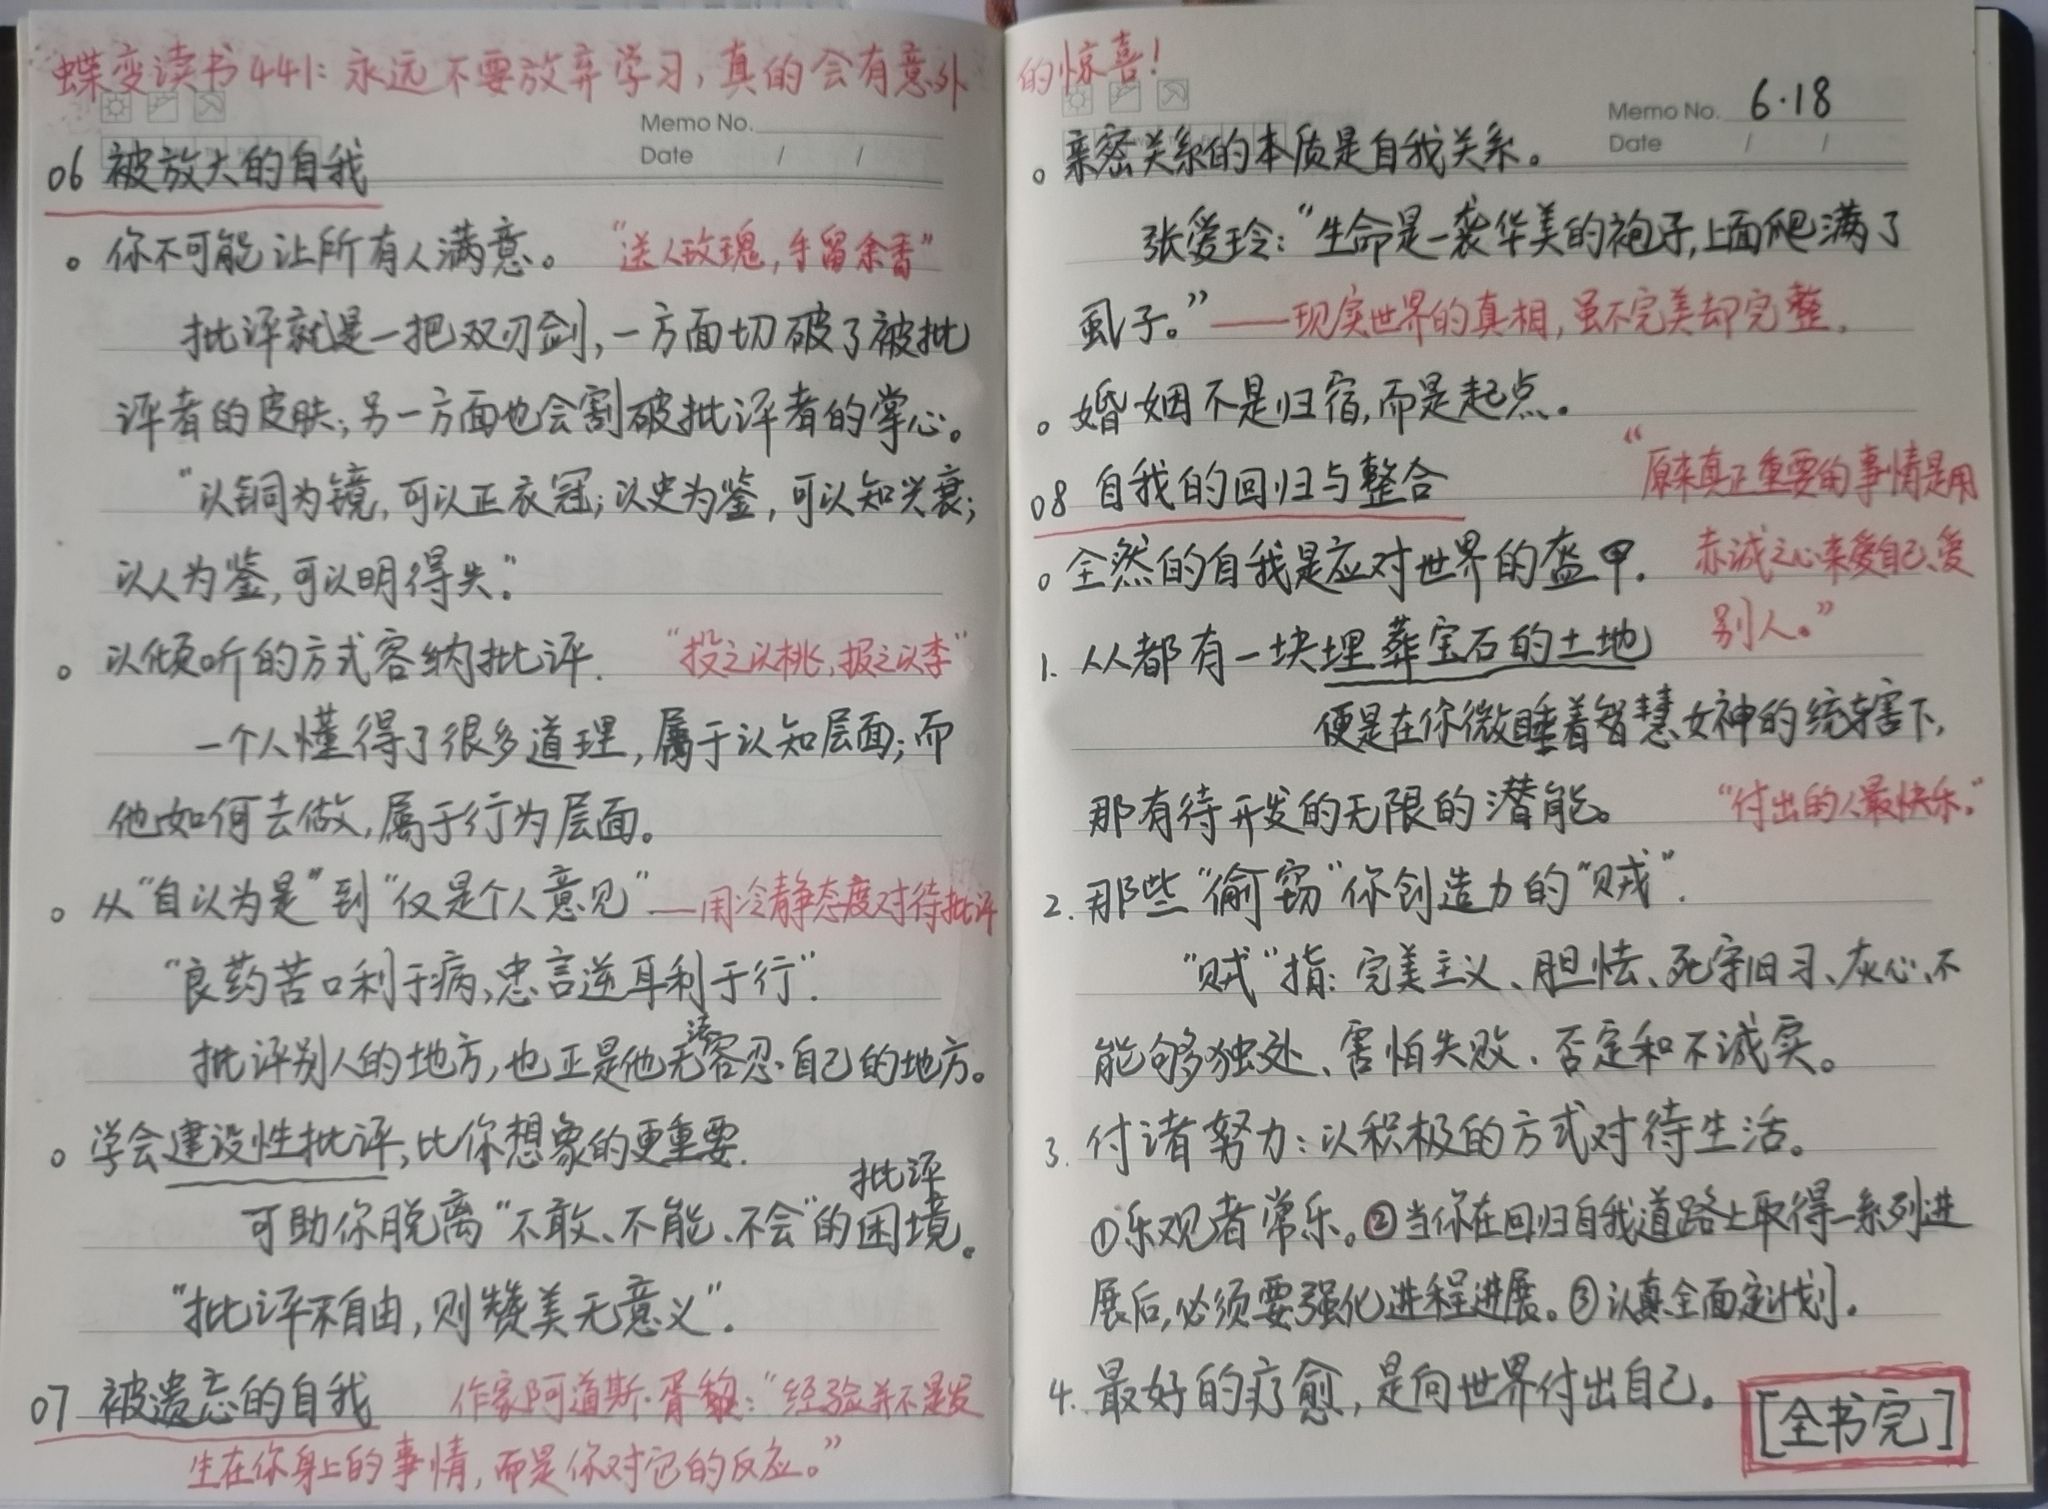 蝶变读书441:永远不要放弃学习,真的会有意外的惊喜!
Memo No.
Date / /
06 被放大的自我
。你不可能让所有人满意。 "送人玫瑰,手留余香"
批评就是一把双刃剑,一方面切破了被批
评者的皮肤;另一方面也会割破批评者的掌心。
"以铜为镜,可以正衣冠;以史为鉴,可以知兴衰;
以人为鉴,可以明得失。"
。以倾听的方式容纳批评. "投之以桃,报之以李"
一个人懂得了很多道理,属于认知层面;而
他如何去做,属于行为层面。
。从"自以为是"到"仅是个人意见"——用冷静态度对待批评
"良药苦口利于病,忠言逆耳利于行".
批评别人的地方,也正是他无法容忍自己的地方。
。学会建设性批评,比你想象的更重要.
可助你脱离"不敢、不能、不会"批评的困境。
"批评不自由,则赞美无意义".
07 被遗忘的自我 作家阿道斯·胥黎:"经验并不是发
生在你身上的事情,而是你对它的反应。"
Memo No. 6·18
Date / /
。亲密关系的本质是自我关系。
张爱玲:"生命是一袭华美的袍子,上面爬满了
虱子。"——现实世界的真相,虽不完美却完整.
。婚姻不是归宿,而是起点.
08 自我的回归与整合 "原来真正重要的事情是用
。全然的自我是应对世界的盔甲. 赤诚之心来爱自己、爱
1. 人人都有一块埋葬宝石的土地 别人。"
便是在你微睡着智慧女神的统辖下,
那有待开发的无限的潜能。 "付出的人最快乐."
2. 那些"偷窃"你创造力的"贼".
"贼"指:完美主义、胆怯、死守旧习、灰心、不
能够独处、害怕失败、否定和不诚实。
3. 付诸努力:以积极的方式对待生活。
①乐观者常乐。②当你在回归自我道路上取得一系列进
展后,必须要强化进程进展。③认真全面定计划.
4. 最好的疗愈,是向世界付出自己。
[全书完]